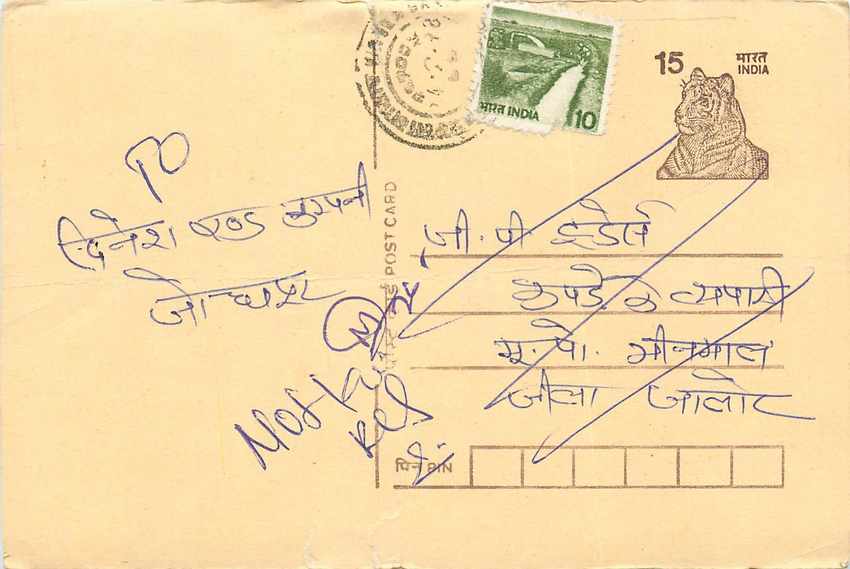 15 भारत
INDIA
भारत INDIA 10
TO
दिनेश एण्ड कम्पनी
जोधपुर
POST CARD
जी. पी. ट्रेडर्स
कपड़े के व्यपारी
मू. पो. भीनमाल
जीला जालोर
पिन PIN